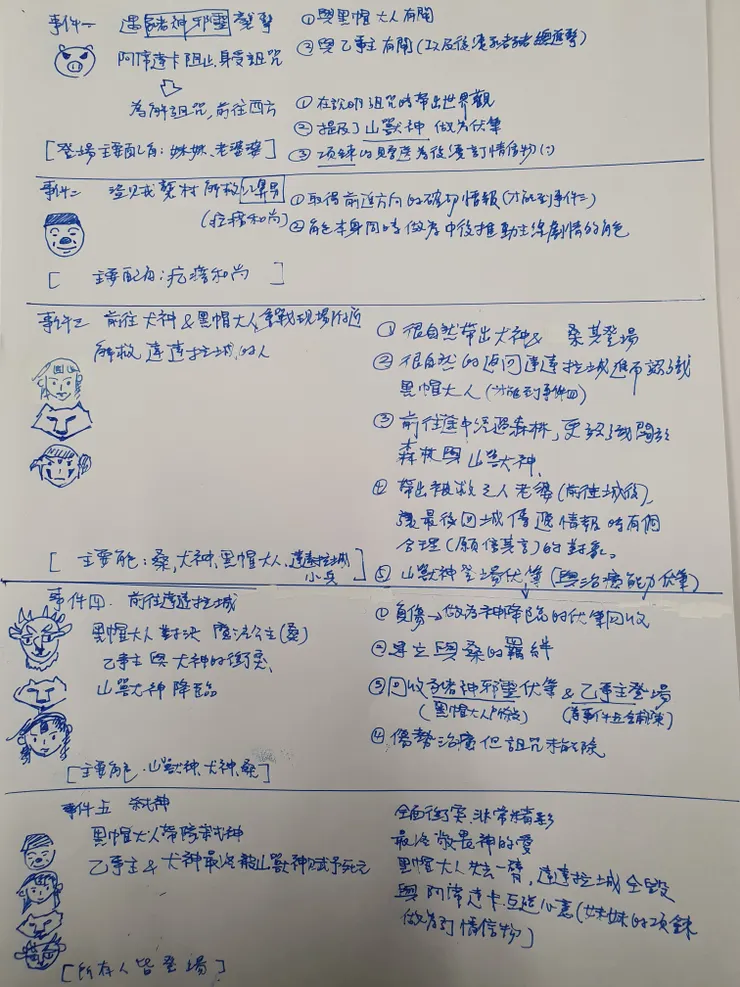 事件一 遇豬神邪靈襲擊
阿席達卡阻止,身受詛咒
為解詛咒,前往西方
[登場主要配角:妹妹、老婆婆]
① 與黑帽大人有關
② 與乙事主有關(以及後續豬豬總進擊)
① 在說明詛咒時帶出世界觀
② 提及了山獸神 做為伏筆
③ 項鍊的贈送為後續訂情信物(:)
事件二 盜賊襲村 解救
(疙瘩和尚)
[ 主要配角:疙瘩和尚 ]
① 取得前進方向的確切情報(才能到事件三)
② 角色本身同時做為中後推動主線劇情的角色
事件三 前往犬神&黑帽大人爭戰現場附近
解救達達拉城的人
[主要角色:桑,犬神,黑帽大人,達達拉城
小兵]
① 很自然帶出犬神& 桑其登場
② 很自然的返回達達拉城進而認識
黑帽大人(才能到事件四)
③ 前往途中經過森林,更認識關於
森林與山獸神.
④ 帶出被救之人老婆(前往城後),
讓最後回城傳遞情報時有個
合理(願信其言)的對象。
⑤ 山獸神登場伏筆(與治療能力伏筆)
事件四. 前往達達拉城
黑帽大人對決 魔法公主(桑)
乙事主與犬神的衝突、
山獸神降臨
[主要角色:山獸神、犬神、桑]
① 負傷→做為神降臨的伏筆回收
② 建立與桑的羈絆
③ 回收豬神邪靈伏筆&乙事主登場
(黑帽大人所致) (為事件五鋪陳)
④ 傷勢治療但詛咒未解除
事件五 弒神
黑帽大人帶隊弒神
乙事主&犬神最終被山獸神賦予死亡
[所有人皆登場]
全面衝突,非常精彩
最終
黑帽大人失去一臂,達達拉城全毀
與阿席達卡互透心意(妹妹的項鍊
做為訂情信物)